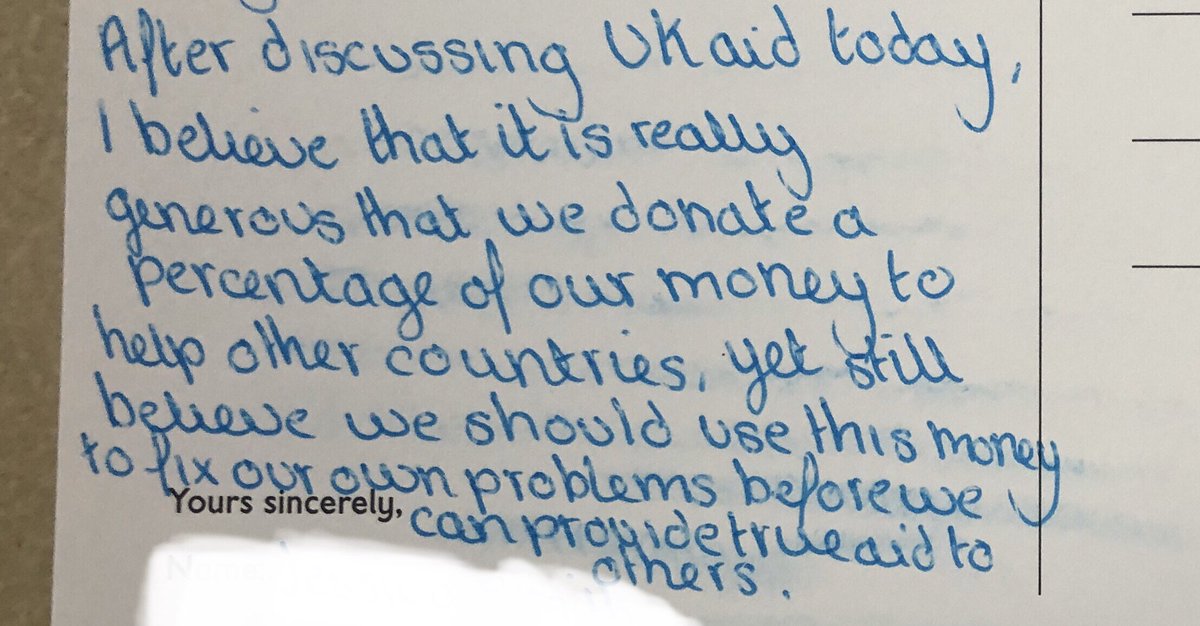 After discussing UK aid today,
I believe that it is really
generous that we donate a
percentage of our money to
help other countries, yet still
believe we should use this money
to fix our own problems before we
Yours sincerely,
can provide true aid to
others.